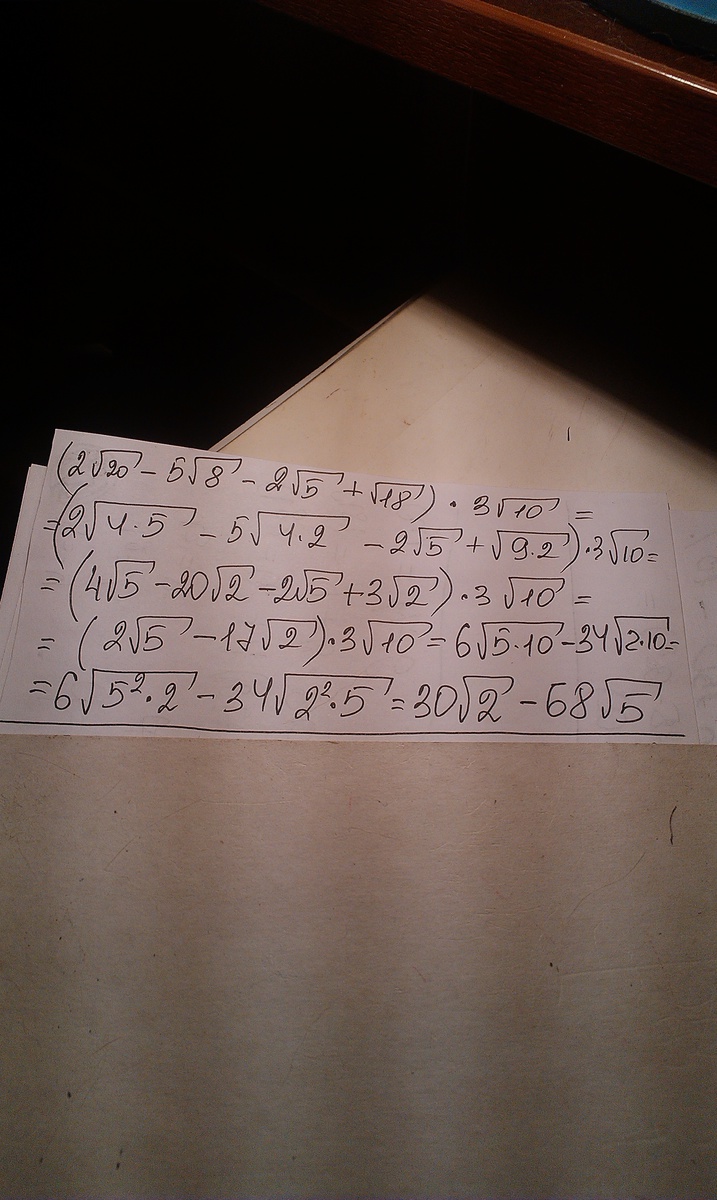 (2√20 - 5√8 - 2√5 + √18) · 3√10 =
=(2√4·5 - 5√4·2 - 2√5 + √9·2)·3√10=
= (4√5 - 20√2 - 2√5 + 3√2) · 3√10 =
= (2√5 - 17√2)·3√10 = 6√5·10 - 34√2·10=
=6√5²·2 - 34√2²·5 = 30√2 - 68√5